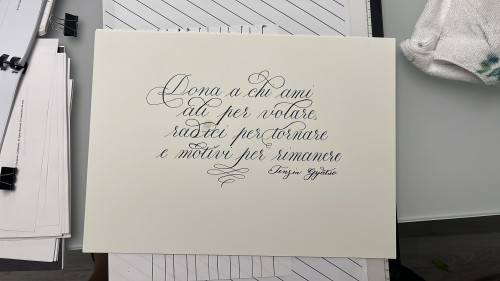 Dona a chi ami
ali per volare,
radici per tornare
e motivi per rimanere
Tenzin Gyatso